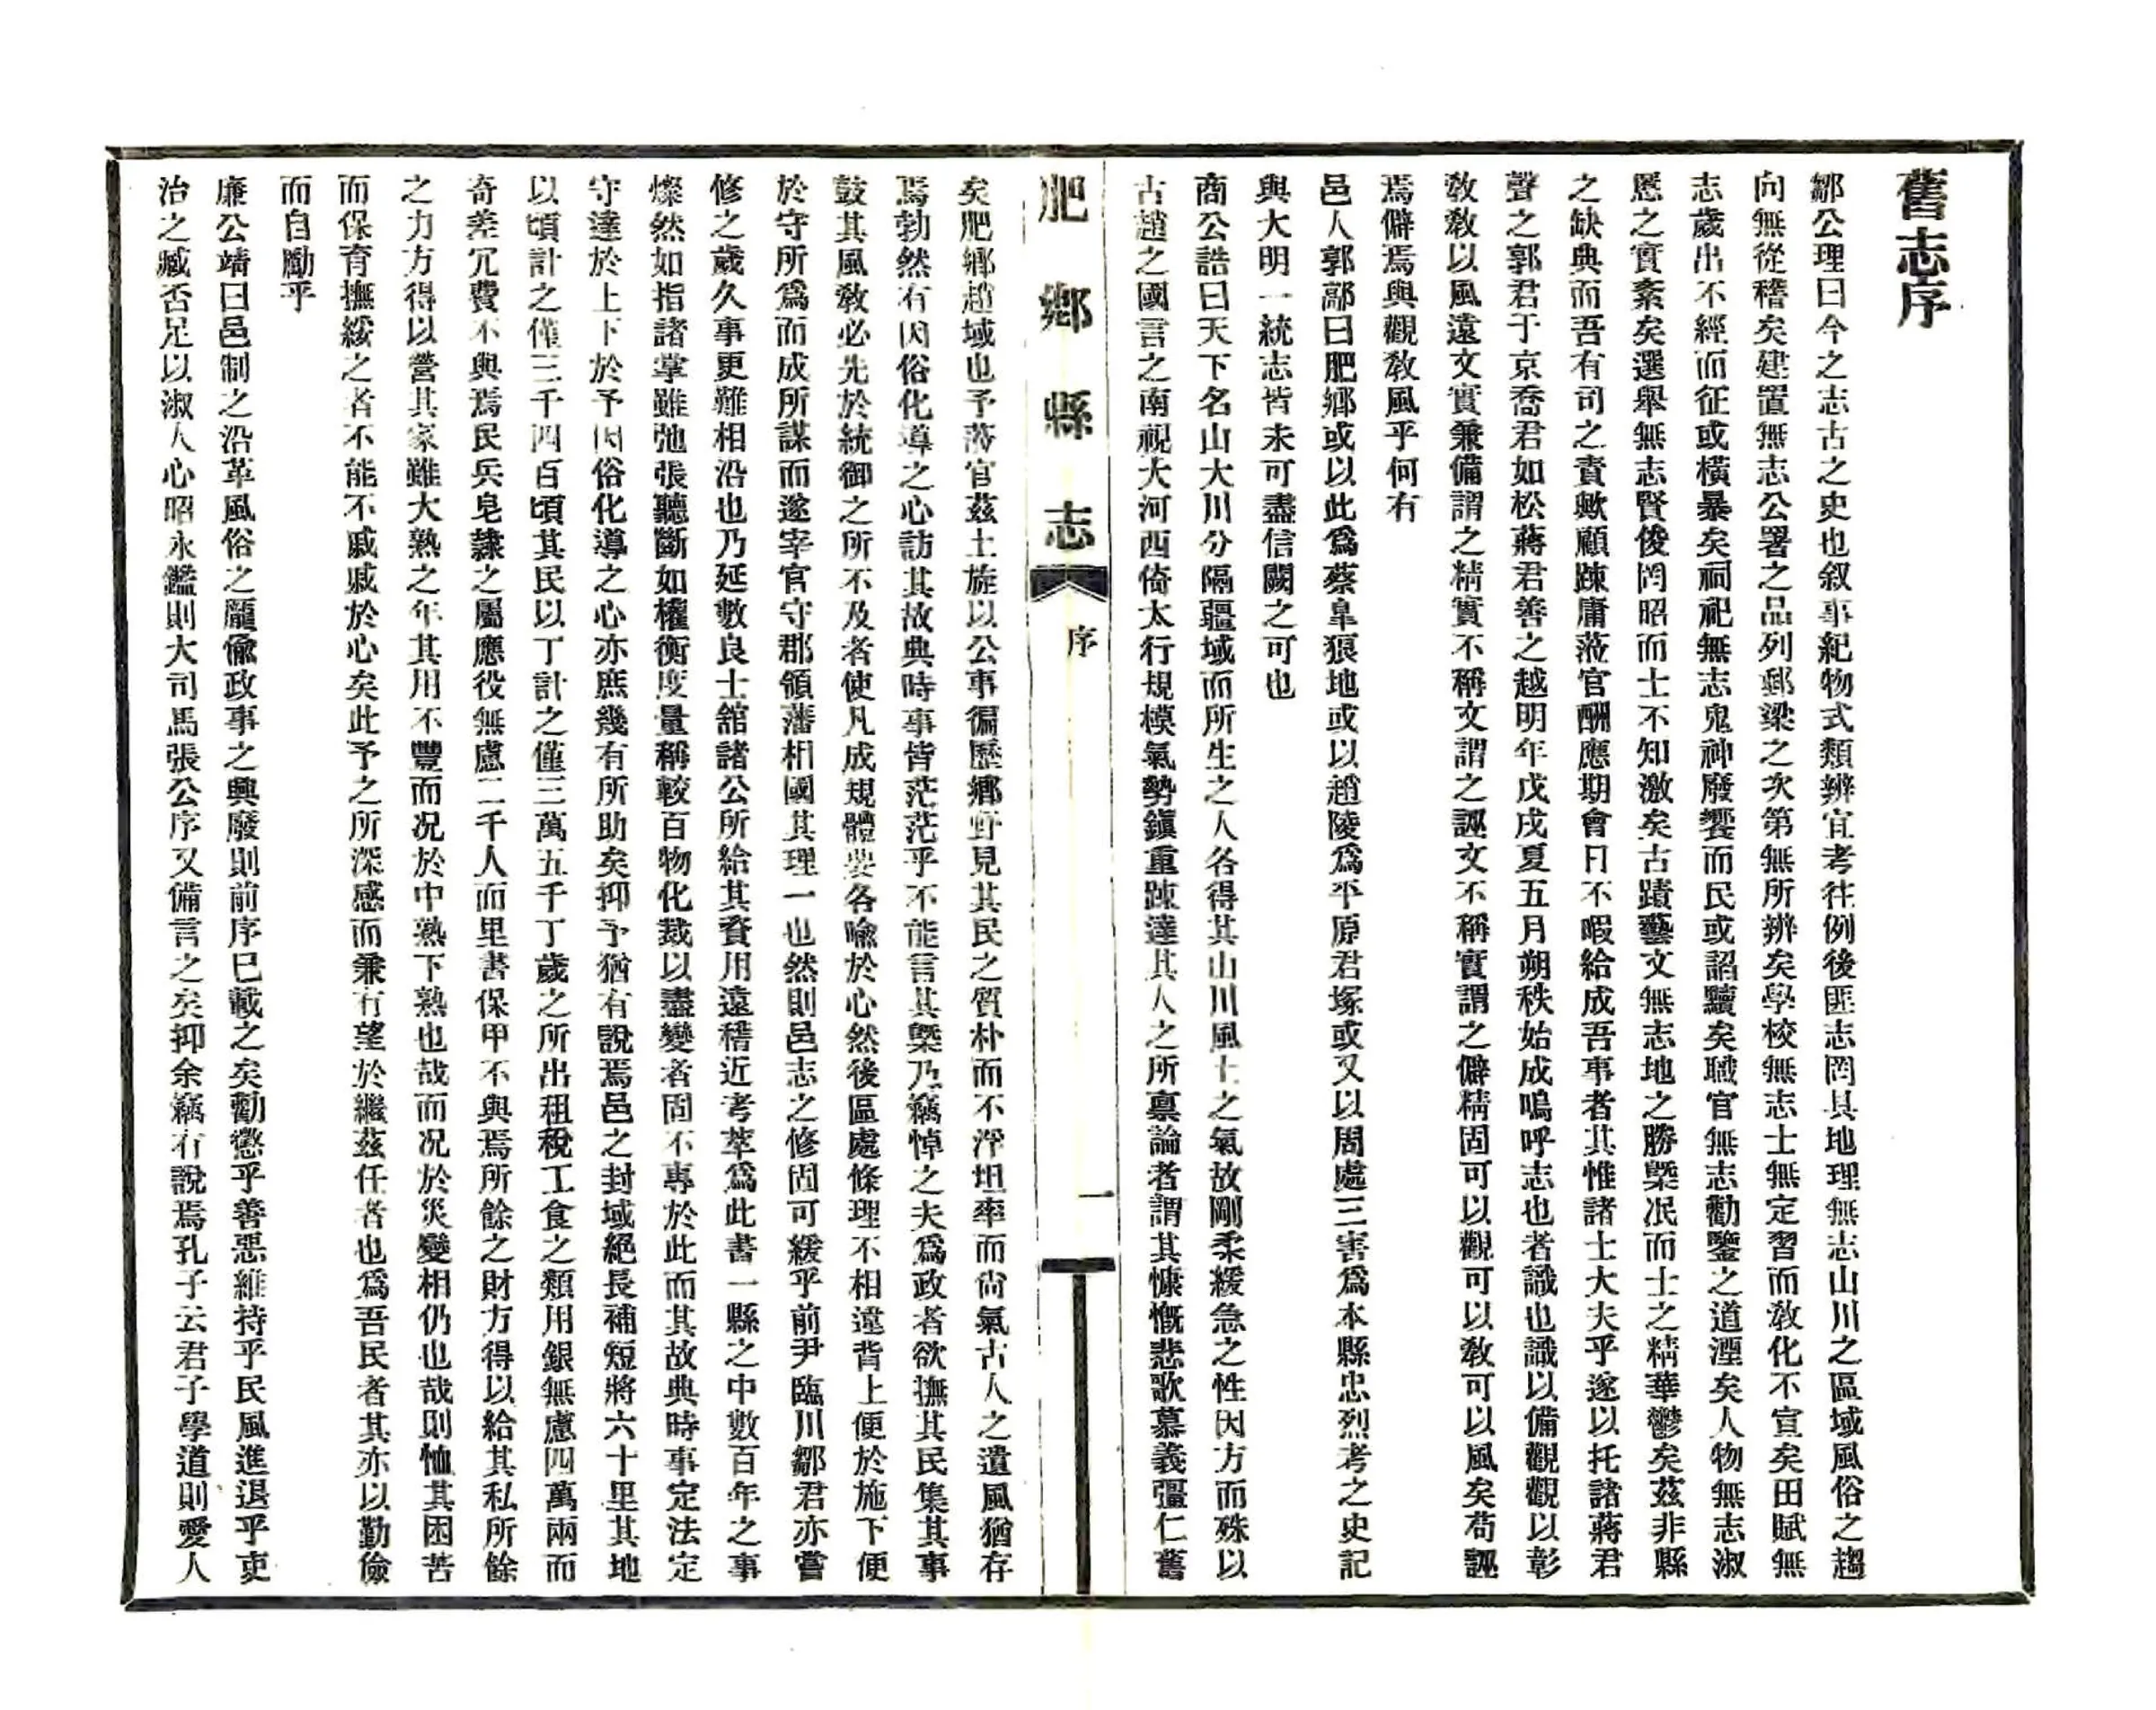 舊志序
鄒公理曰今之志古之史也叙事紀物式類辨宜考往例後匪志罔具地理無志山川之區域風俗之趨
向無從稽矣建置無志公署之品列郵梁之次第無所辨矣學校無志士無定習而敎化不宣矣田賦無
志歲出不經而征或橫暴矣祠祀無志鬼神廢饗而民或諂黷矣職官無志勸鑒之道湮矣人物無志淑
慝之實紊矣選舉無志賢俊罔昭而士不知激矣古蹟藝文無志地之勝槩泯而士之精華鬱矣茲非縣
之缺典而吾有司之責歟顧踈庸蒞官酬應期會日不暇給成吾事者其惟諸士大夫乎遂以托諸蔣君
聲之郭君于京喬君如松蔣君善之越明年戊戌夏五月朔秩始成嗚呼志也者識也識以備觀觀以彰
敎敎以風遠文實兼備謂之精實不稱文謂之誣文不稱實謂之僻精固可以觀可以敎可以風矣苟誣
焉僻焉與觀敎風乎何有
邑人郭鄗曰肥鄉或以此爲蔡皐狼地或以趙陵爲平原君塚或又以周處三害爲本縣忠烈考之史記
與大明一統志皆未可盡信闕之可也
商公誥曰天下名山大川分隔疆域而所生之人各得其山川風土之氣故剛柔緩急之性因方而殊以
古趙之國言之南視大河西倚太行規模氣勢鎭重踈達其人之所稟論者謂其慷慨悲歌慕義彊仁舊
肥鄉縣志 序 一
矣肥鄉趙域也予蒞官茲土旋以公事徧歷鄉野見其民之質朴而不浮坦率而尙氣古人之遺風猶存
焉勃然有因俗化導之心訪其故典時事皆茫茫乎不能言其槩乃竊悼之夫爲政者欲撫其民集其事
鼓其風敎必先於統御之所不及者使凡成規體要各喩於心然後區處條理不相違背上便於施下便
於守所爲而成所謀而遂宰官守郡領藩相國其理一也然則邑志之修固可緩乎前尹臨川鄒君亦嘗
修之歲久事更難相沿也乃延數良士舘諸公所給其資用遠稽近考萃爲此書一縣之中數百年之事
燦然如指諸掌雖弛張聽斷如權衡度量稱較百物化裁以盡變者固不專於此而其故典時事定法定
守達於上下於予因俗化導之心亦庶幾有所助矣抑予猶有說焉邑之封域絕長補短將六十里其地
以頃計之僅三千四百頃其民以丁計之僅三萬五千丁歲之所出租稅工食之類用銀無慮四萬兩而
奇差冗費不與焉民兵皂隸之屬應役無慮二千人而里書保甲不與焉所餘之財方得以給其私所餘
之力方得以營其家雖大熟之年其用不豐而况於中熟下熟也哉而况於災變相仍也哉則恤其困苦
而保育撫綏之者不能不戚戚於心矣此予之所深感而兼有望於繼茲任者也爲吾民者其亦以勤儉
而自勵乎
廉公靖曰邑制之沿革風俗之龐偸政事之興廢則前序已載之矣勸懲乎善惡維持乎民風進退乎吏
治之臧否足以淑人心昭永鑑則大司馬張公序又備言之矣抑余竊有說焉孔子云君子學道則愛人